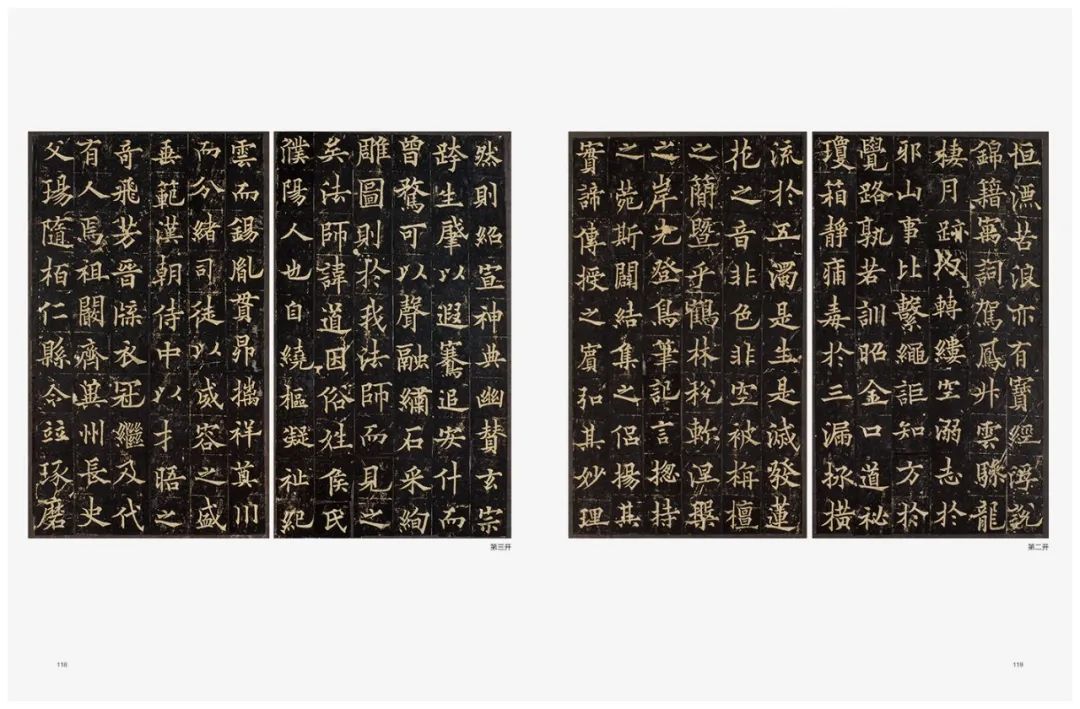 恒漂苦浪亦有寶經浮説
錦籍寓詞駕鳳升雲驂龍
棲月跡均轉縷空溺志於
邪山事比繫繩詎知方於
覺路孰若訓昭金口道祕
瓊箱靜痡毒於三漏拯橫
流於五濁是生是滅發蓮
花之音非色非空被栴檀
之簡暨乎鶴林稅軫涅槃
之岸先登鳥筆記言揔持
之菀斯闢結集之侶揚其
實諦傳授之賓弘其妙理
第二开
119
然則紹宣神典幽賛玄宗
跨生肇以遐騫追安什而
曾騖可以聲融繡石采絢
雕圖則於我法師而見之
矣法師諱道因俗姓侯氏
濮陽人也自繞樞凝祉紀
雲而錫胤貫昴摛祥奠川
而分緒司徒以威容之盛
垂範漢朝侍中以才晤之
奇飛芳晉牒衣冠繼及代
有人焉祖闕齊冀州長史
父瑒隨柏仁縣令竝琢磨
第三开
118